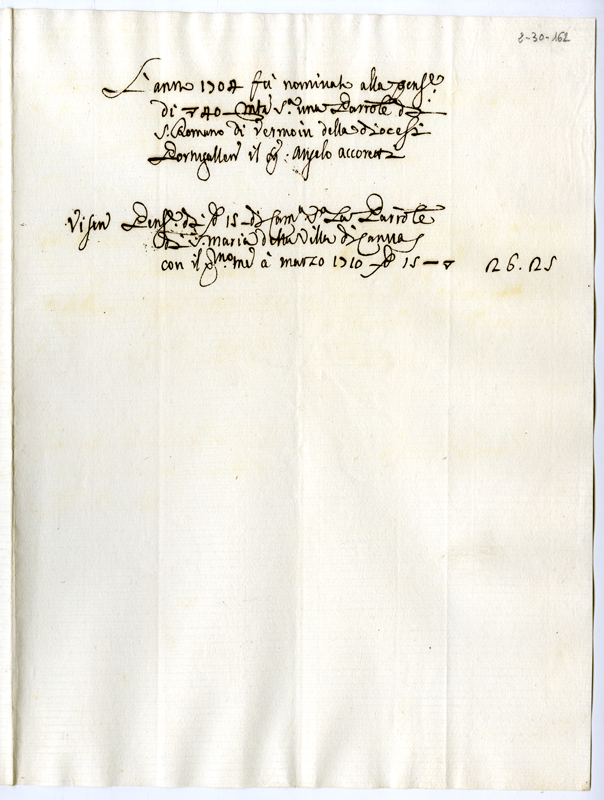 2-30-162
L'anno 1704 fù nominato alla pens.e
di 40 S.a una Parrôle di
S. Romano di Vermoin della diocesi
Portugallen il Angelo accoretti
Visen Pens.e di 15 di Cam.a S.a La Parrôle
di S. Maria della Villa di Cannas
con il p.mo me à marzo 1710 15 — 26.25